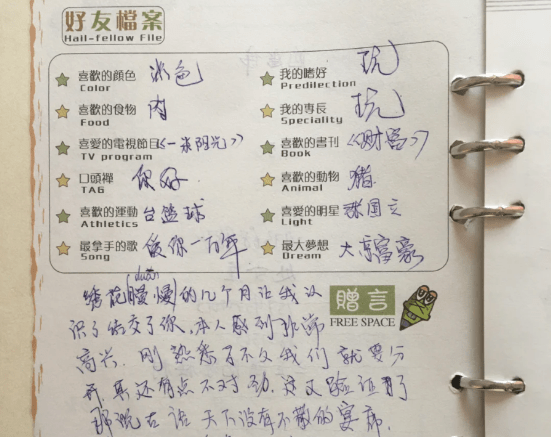 好友檔案
Hail-fellow File
喜歡的顏色 米色 我的嗜好 玩
Color Predilection
喜歡的食物 肉 我的專長 玩
Food Speciality
喜愛的電視節目 《一米阳光》 喜歡的書刊 《财富》
TV program Book
口頭禪 你好 喜歡的動物 猪
TAG Animal
喜歡的運動 台篮球 喜愛的明星
Athletics Light
最拿手的歌 爱你一万年 最大夢想 大富豪
Song Dream
(duǎn)
的几个月让我认 贈言
识了结交了你,本人感到非常 FREE SPACE
高兴。刚熟悉了不久我们就要分
开,真还有点不对劲,这又验证了
那说古话 天下没有不散的宴席.